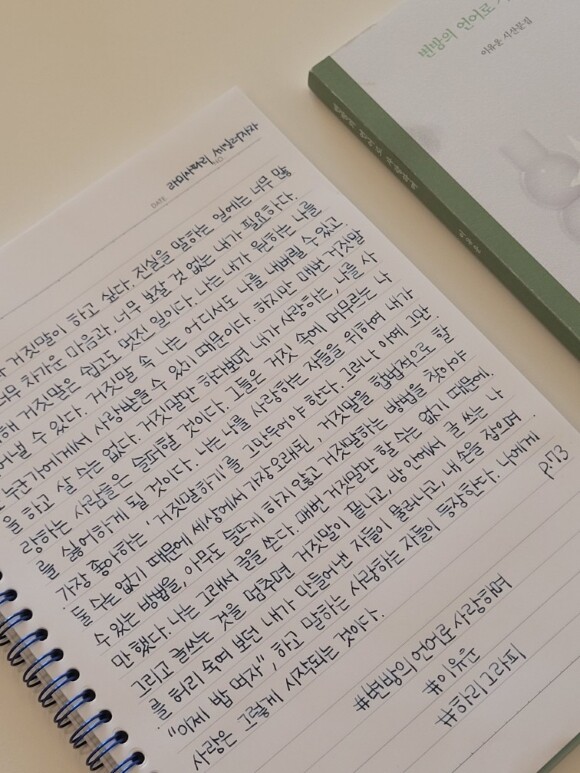 라미사파리,
DATE
거짓말이 하고 싶다. 진실을 말하는 일에는 너무 많
너무 차가운 마음과, 너무 보잘 것 없는 내가 필요하다.
거짓말은 쉽고도 멋진 일이다. 나는 내가 원하는 나를
어낼 수 있다. 거짓말 속 나는 어디서도 나를 내버릴 수 있고
누군가에게서 사랑받을 수 있기 때문이다. 하지만 매번 거짓말
을 하고 살 수는 없다. 거짓말만 하다보면 내가 사랑하는, 나를 사
랑하는 사람들은 슬퍼할 것이다. 그들은 거짓 속에 머무르는 나
를 싫어하게 될 것이다. 나는 나를 사랑하는 자들을 위하여 내가
가장 좋아하는 '거짓말하기'를 그만두어야 한다. 그러나 아예 그만
둘 수는 없기 때문에 세상에서 가장 오래된, 거짓말을 합법적으로 할
수 있는 방법을, 아무도 슬프게 하지 않고 거짓말하는 방법을 찾아야
만 했다. 나는 그래서 글을 쓴다. 매번 거짓말만 할 수는 없기 때문에.
그리고 글쓰는 것을 멈추면 거짓말이 끝나고, 방 안에서 글 쓰는 나
를 허리 숙여 보던 내가 만들어낸 자들이 물러나고, 내 손을 잡으며
"이제 밥 먹자", 하고 말하는 사랑하는 자들이 등장한다. 나에게
사랑은 그렇게 시작되는 것이다.
p.73
#변방의 언어로 사랑하며
#이유운
#하리그라피
변방의 언어로
이유운 시산문집
변방의 언어로 사랑하며
이유운